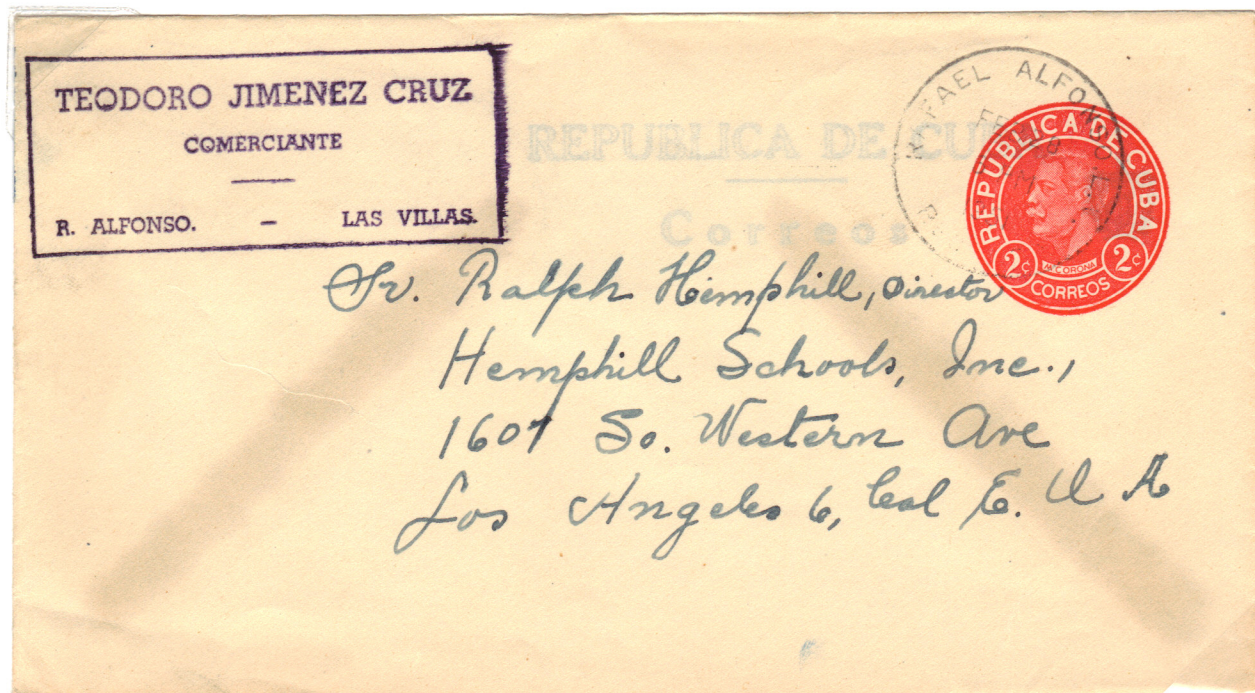 TEODORO JIMENEZ CRUZ
COMERCIANTE
R. ALFONSO. - LAS VILLAS.
REPUBLICA DE CU
Correos
RAFAEL ALFONSO
REPUBLICA DE CUBA
2¢ M. CORONA 2¢
CORREOS
Sr. Ralph Hemphill, Director
Hemphill Schools, Inc.,
1607 So. Western Ave
Los Angeles 6, Cal E. U A